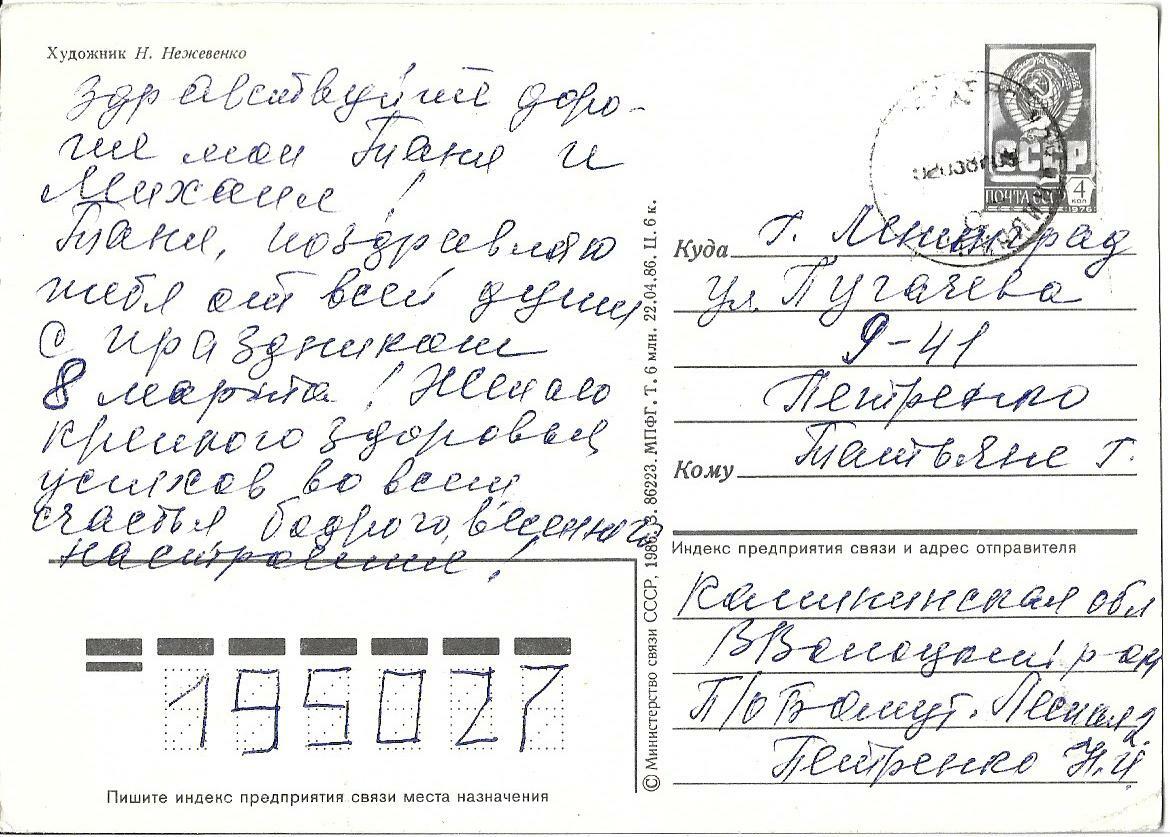 Художник Н. Нежевенко
Здравствуйте доро-
гие мои Таня и
Михаил!
Таня, поздравляю
тебя от всей души
с праздником
8 марта! Желаю
крепкого здоровья
успехов во всем
счастья бодрого, весеннего
настроения!
Пишите индекс предприятия связи места назначения
195027
© Министерство связи СССР, 1986. З. 86223. МПФГ. Т. 6 млн. 22.04.86. Ц. 6 к.
СССР
ПОЧТА СССР
4 КОП
1976
Куда г. Ленинград
ул. Пугачева
9-41
Петренко
Кому Татьяне Г.
Индекс предприятия связи и адрес отправителя
Калининская обл
ВВолоцкий р он
П/о Бомут. Лесная 2
Петренко Н.И